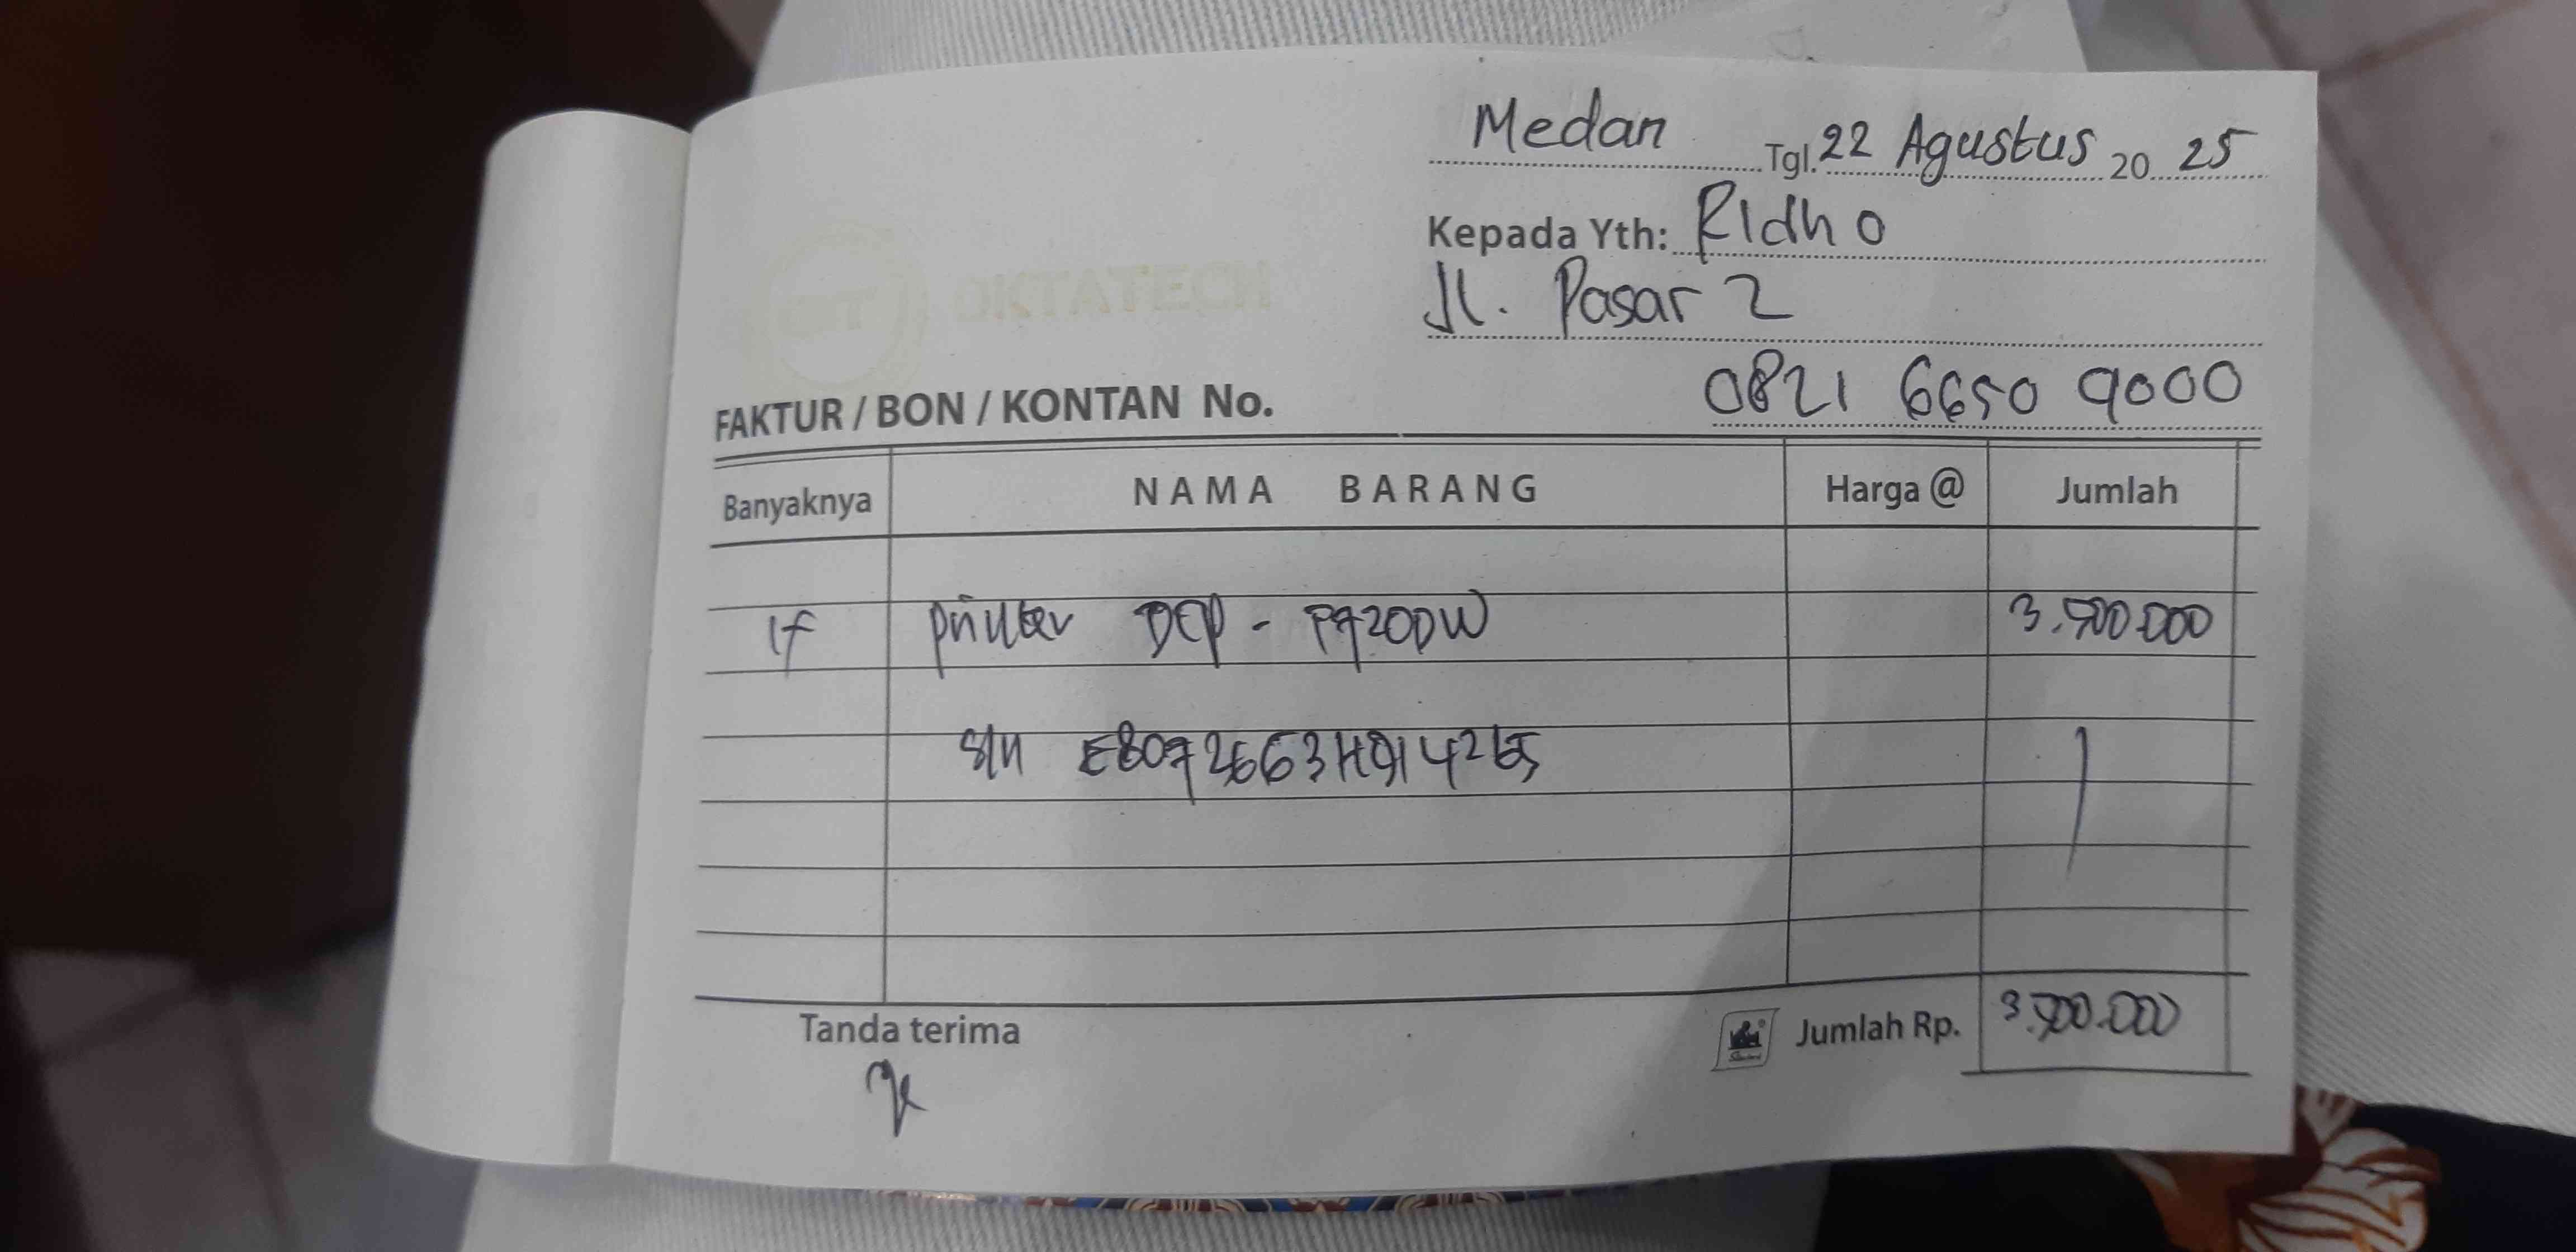 Medan Tgl. 22 Agustus 20 25
Kepada Yth: Ridho
Jl. Pasar 2
OKTATECH
FAKTUR / BON / KONTAN No. 0821 6650 9000
Banyaknya NAMA BARANG Harga @ Jumlah
1 printer DCP - T720DW 3.500.000
S/N E8072663H914265
Tanda terima Jumlah Rp. 3.500.000